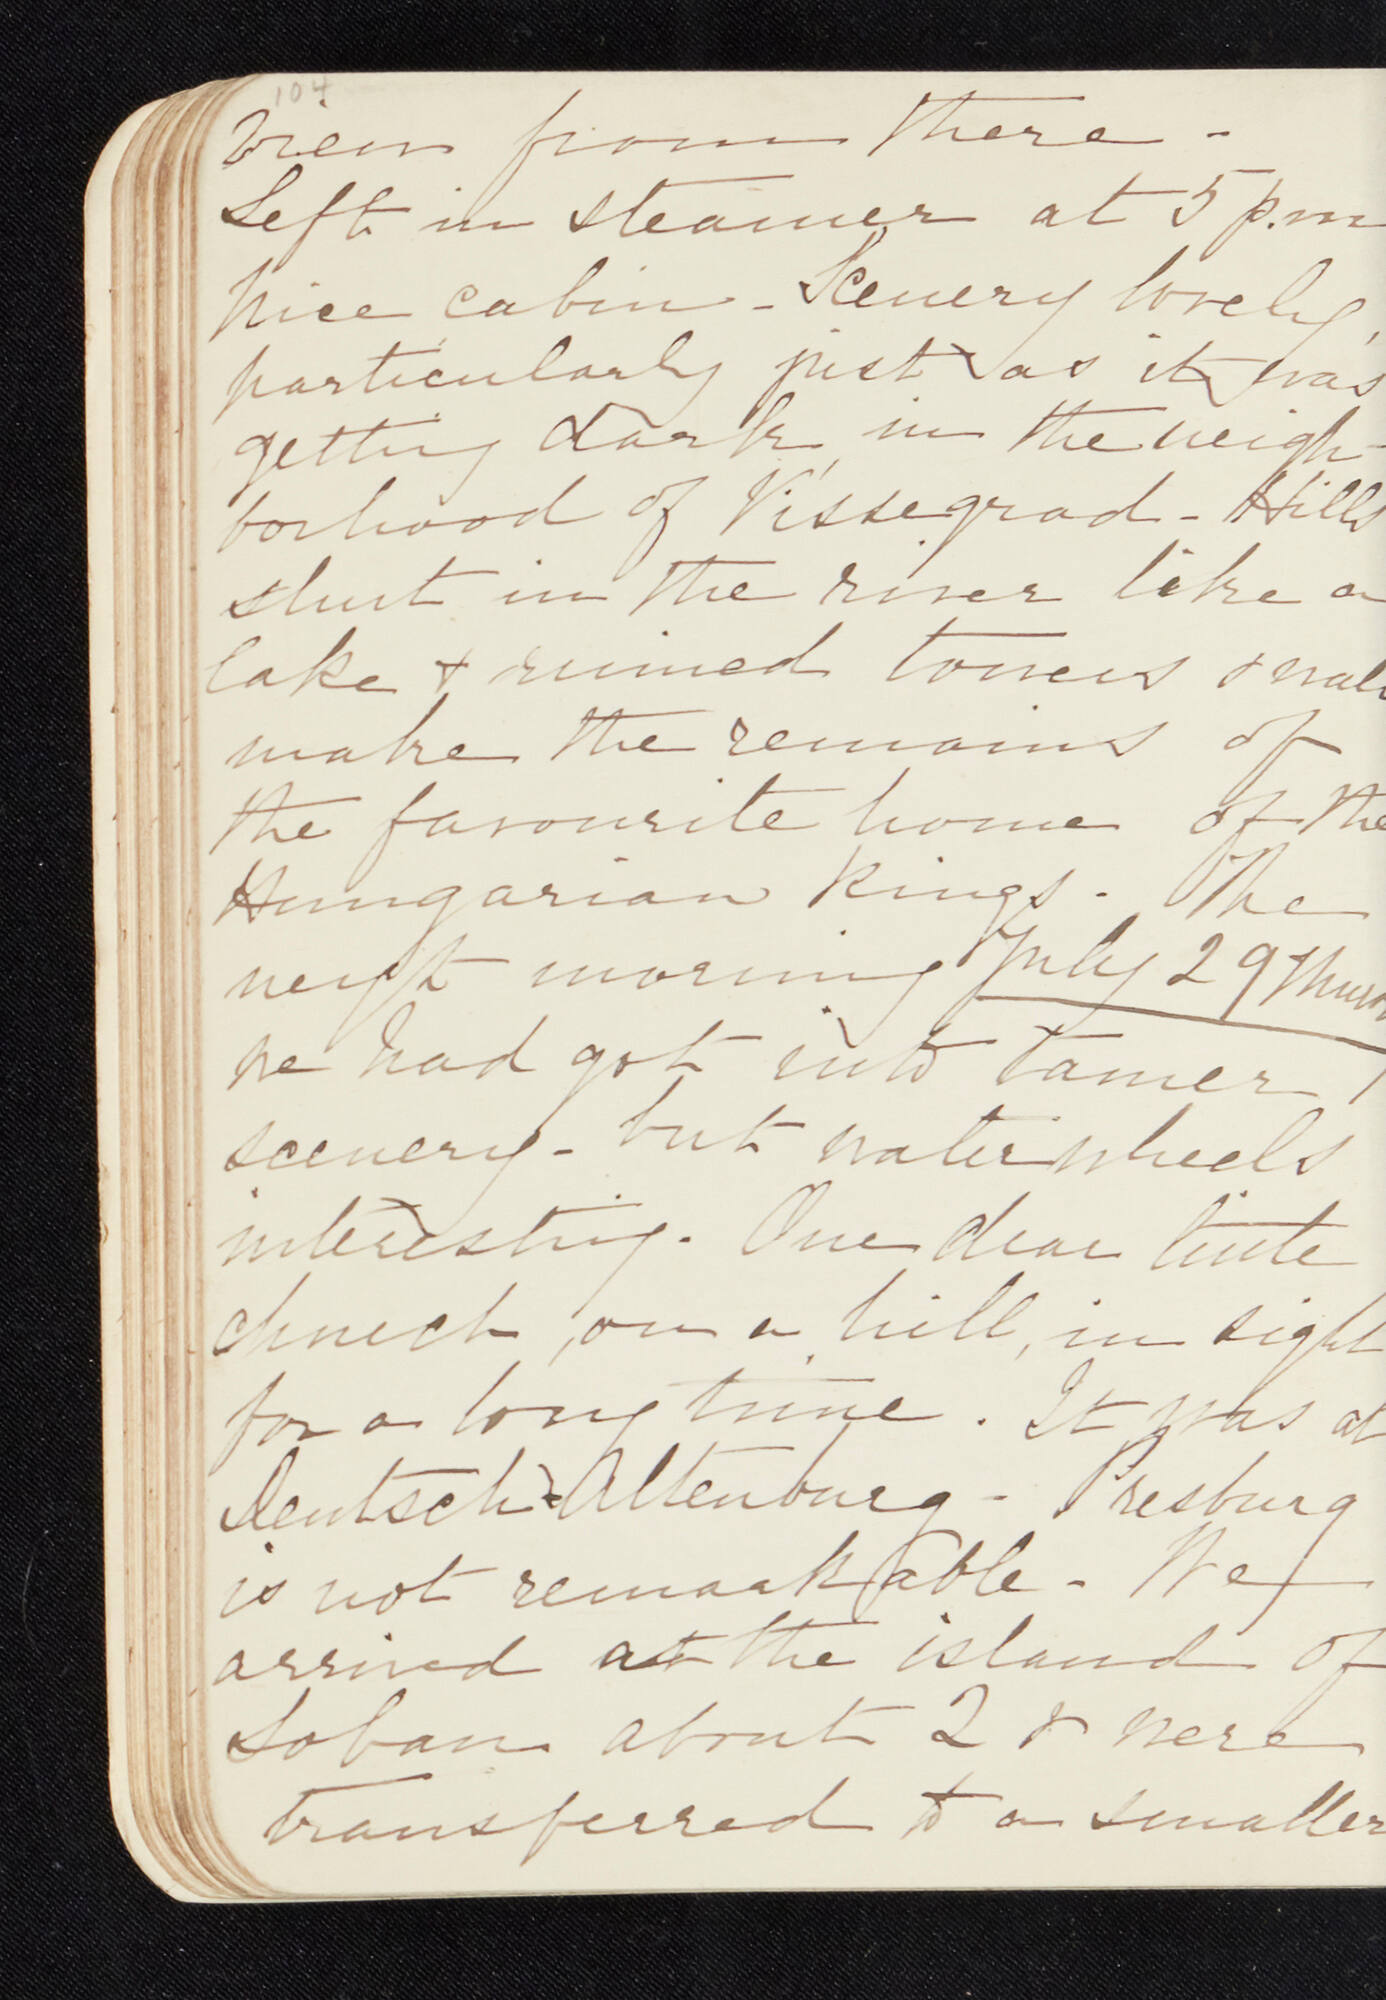 104
view from there -
Left in steamer at 5 p.m
nice cabin - Scenery lovely,
particularly just as it was
getting dark, in the neigh-
borhood of Vissegrad - Hills
shut in the river like a
lake & ruined towers & walls
make the remains of
the favourite home of the
Hungarian Kings - The
next morning July 29 Thurs
we had got into tamer
scenery - but waterwheels
interesting. One dear little
church, on a hill, in sight
for a long time. It was at
Deutsch-Altenburg - Presburg
is not remarkable - We
arrived at the island of
Loban about 2 & were
transferred to a smaller